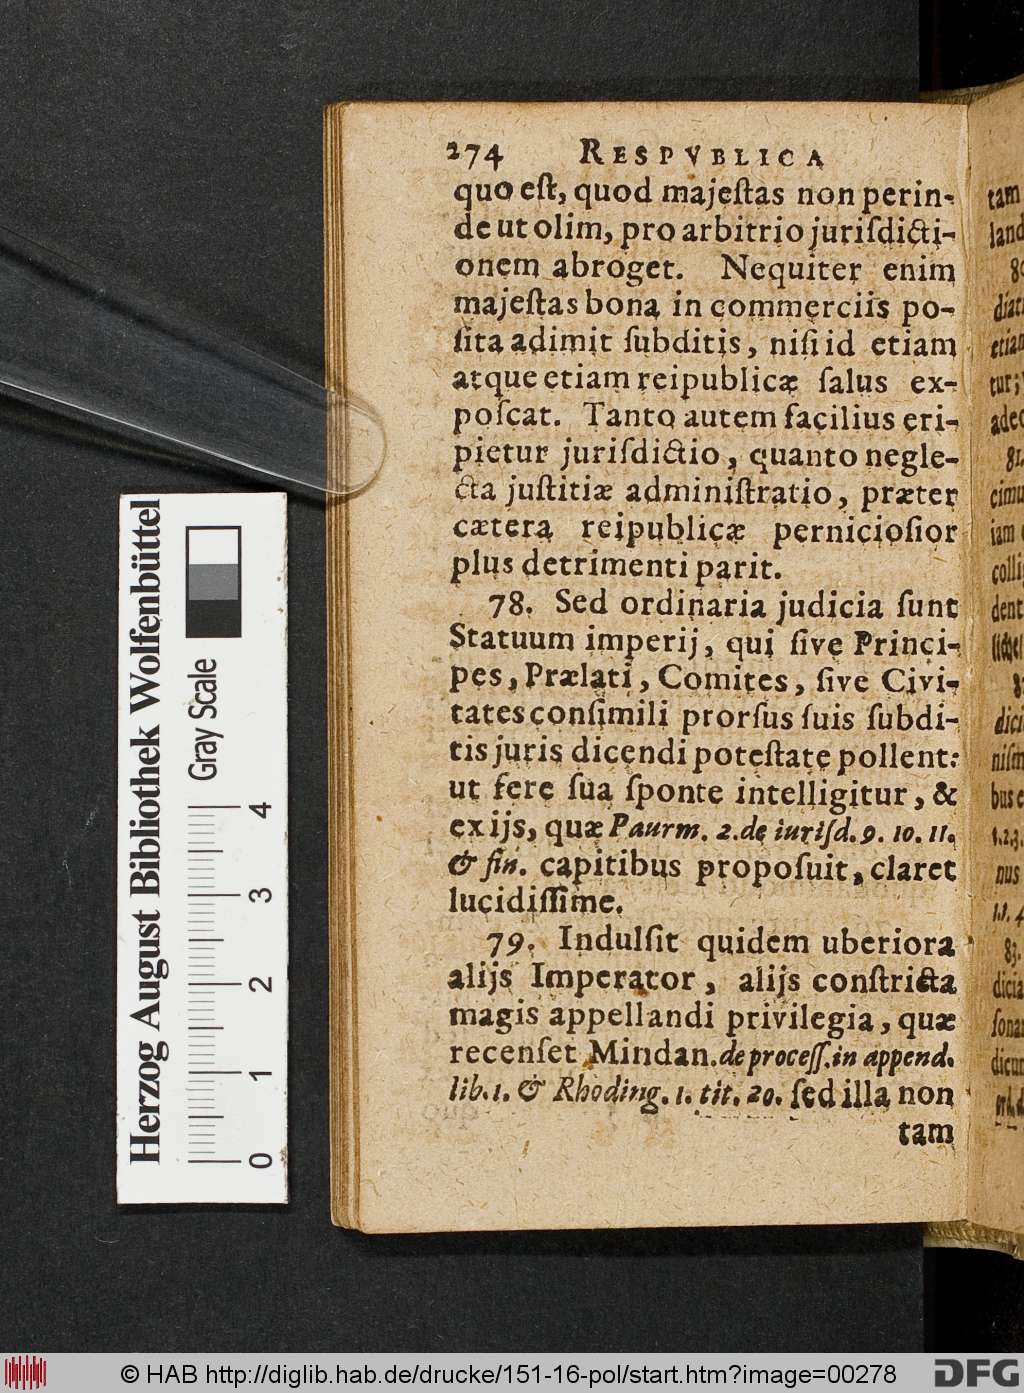 274 RESPVBLICA
quo eſt, quod majeſtas non perin-
de ut olim, pro arbitrio juriſdicti-
onem abroget. Nequiter enim
majeſtas bona in commerciis po-
ſita adimit ſubditis, niſi id etiam
atque etiam reipublicæ ſalus ex-
poſcat. Tanto autem facilius eri-
pietur juriſdictio, quanto negle-
cta juſtitiæ adminiſtratio, præter
cætera reipublicæ pernicioſior
plus detrimenti parit.
78. Sed ordinaria judicia ſunt
Statuum imperij, qui ſive Princi-
pes, Prælati, Comites, ſive Civi-
tates conſimili prorſus ſuis ſubdi-
tis juris dicendi poteſtate pollent:
ut fere ſua ſponte intelligitur, &
ex ijs, quæ Paurm. 2. de iuriſd. 9. 10. 11.
& fin. capitibus propoſuit, claret
lucidiſſime.
79. Indulſit quidem uberiora
alijs Imperator, alijs conſtricta
magis appellandi privilegia, quæ
recenſet Mindan. de proceſſ. in append.
lib. 1. & Rhoding. 1. tit. 20. ſed illa non
tam
tam
land
diat
etiam
tur;
adeo
81.
cimu
iam
colli
dent
dici
niſm
bus e
1.2.3.
nus
1.1. 4
83.
dicia
ſona
dicun
Herzog August Bibliothek Wolfenbüttel
Gray Scale
0 1 2 3 4
© HAB http://diglib.hab.de/drucke/151-16-pol/start.htm?image=00278
DFG